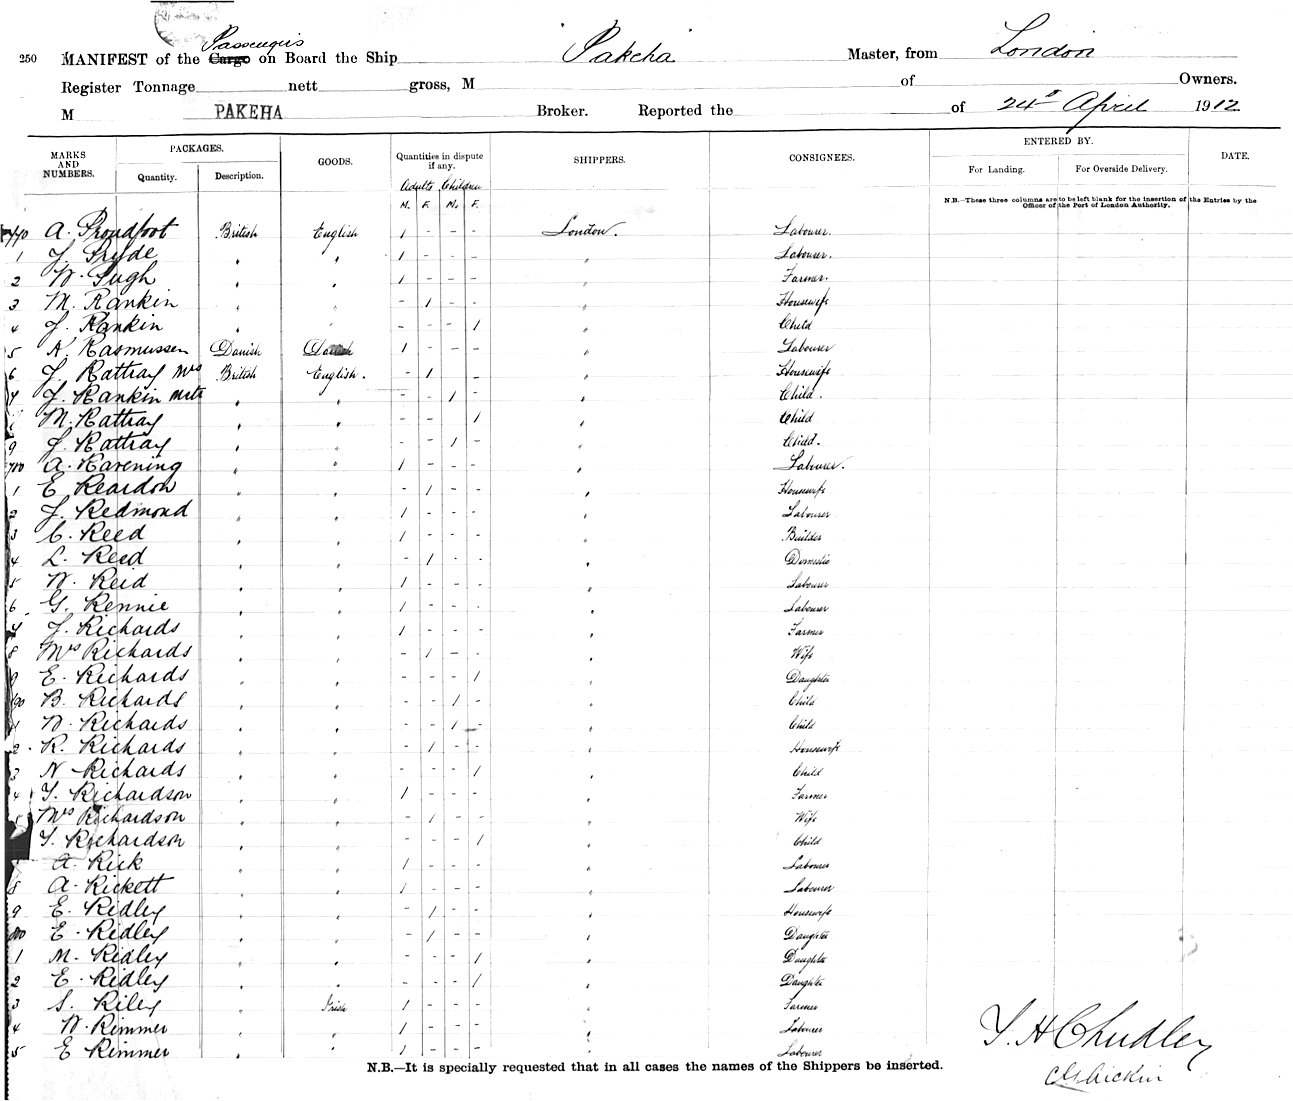 250 MANIFEST of the Cargo Passengers on Board the Ship Pakeha Master, from London
Register Tonnage nett gross, M of Owners.
M PAKEHA Broker. Reported the of 24th April 1912
MARKS AND NUMBERS. PACKAGES. Quantity. Description. GOODS. Quantities in dispute if any. SHIPPERS. CONSIGNEES. ENTERED BY. For Landing. For Overside Delivery. DATE.
Adults Children
M. F. M. F.
N.B.—These three columns are to be left blank for the insertion of the Entries by the Officer of the Port of London Authority.
A. Proudfoot British English 1 - - - London. Labourer.
1 J. Pryde " " 1 - - - " Labourer.
2 W. Pugh " " 1 - - - " Farmer.
3 M. Rankin " " - 1 - - " Housewife
4 J. Rankin " " - - - 1 " Child
5 K. Rasmussen Danish Danish 1 - - - " Labourer
6 J. Rattray Mrs British English. - 1 - - " Housewife
7 J. Rankin Mstr " " - - 1 - " Child.
M. Rattray " " - - - 1 " Child
9 J. Rattray " " - - 1 - " Child.
A. Ravening " " 1 - - - " Labourer.
1 E Reardon " " - 1 - - " Housewife
2 J. Redmond " " 1 - - - " Labourer
3 C. Reed " " 1 - - - " Builder
4 L. Reed " " - 1 - - " Domestic
5 W. Reid " " 1 - - - " Labourer
6 G. Rennie " " 1 - - - " Labourer
7 J. Richards " " 1 - - - " Farmer
8 Mrs Richards " " - 1 - - " Wife
9 E. Richards " " - - - 1 " Daughter
B. Richards " " - - 1 - " Child
1 W. Richards " " - - 1 - " Child
2 R. Richards " " - 1 - - " Housewife
3 N Richards " " - - - 1 " Child
4 T. Richardson " " 1 - - - " Farmer
5 Mrs Richardson " " - 1 - - " Wife
T. Richardson " " - - - 1 " Child
A. Rick " " 1 - - - " Labourer
8 A. Rickett " " 1 - - - " Labourer
9 E. Ridley " " - 1 - - " Housewife
800 E. Ridley " " - 1 - - " Daughter
1 M. Ridley " " - - - 1 " Daughter
2 E. Ridley " " - - - 1 " Daughter
3 S. Riley " Irish 1 - - - " Farmer
4 W. Rimmer " " 1 - - - " Labourer
5 E Rimmer " " 1 - - - " Labourer
N.B.—It is specially requested that in all cases the names of the Shippers be inserted.
T. H Chudley